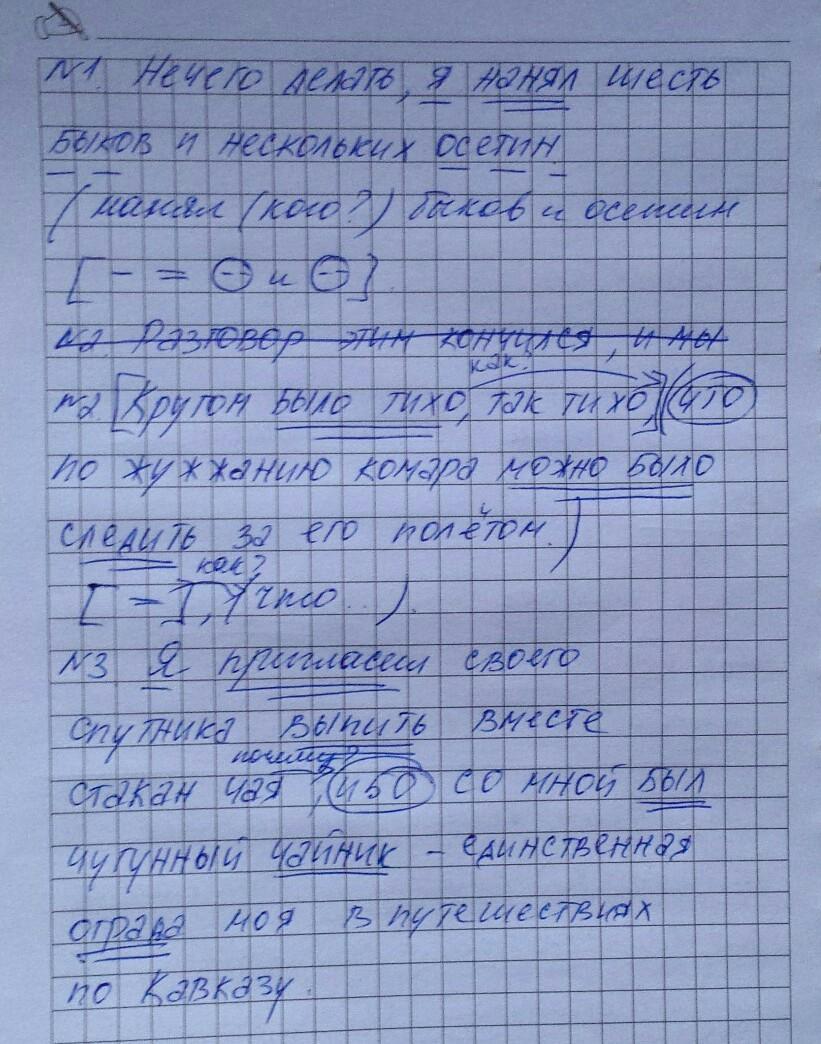 №1. Нечего делать, я нанял шесть
быков и нескольких осетин.
(нанял (кого?) быков и осетин
[- = ⊖ и ⊖].
№2. Разговор этим кончился, и мы
как?
№2. [Кругом было тихо, так тихо], (что
по жужжанию комара можно было
следить за его полётом.)
как?
[ = ], (что...).
№3 Я пригласил своего
спутника выпить вместе
почему?
стакан чая, ибо со мной был
чугунный чайник – единственная
отрада моя в путешествиях
по Кавказу.